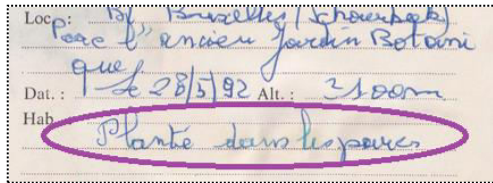 Loc.: Bf Bruxelles (Schaerbeek)
Parc l'ancien Jardin Botani
que. le 28/5/92 Alt. : ± 100m
Dat. :
Hab
Planté dans les parcs